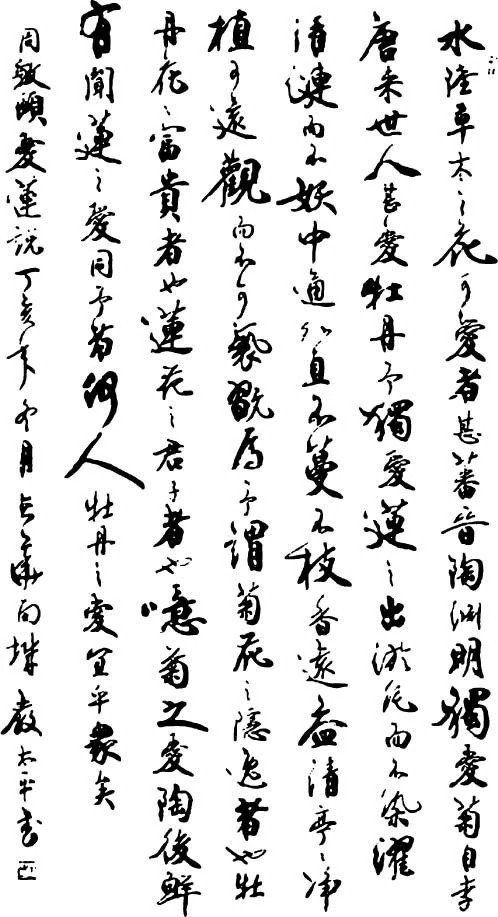 水陸草木之花可愛者甚蕃晉陶渊明獨愛菊自李
唐来世人甚愛牡丹予獨愛蓮之出淤泥而不染濯
清漣而不妖中通外直不蔓不枝香遠益清亭々净
植可遠觀而不可褻翫焉予謂菊花之隱逸者也牡
丹花之富貴者也蓮花之君子者也噫菊之愛陶後鮮
有聞蓮之愛同予者何人牡丹之愛宜乎衆矣
周敦頤愛蓮説丁亥年冬月太平書